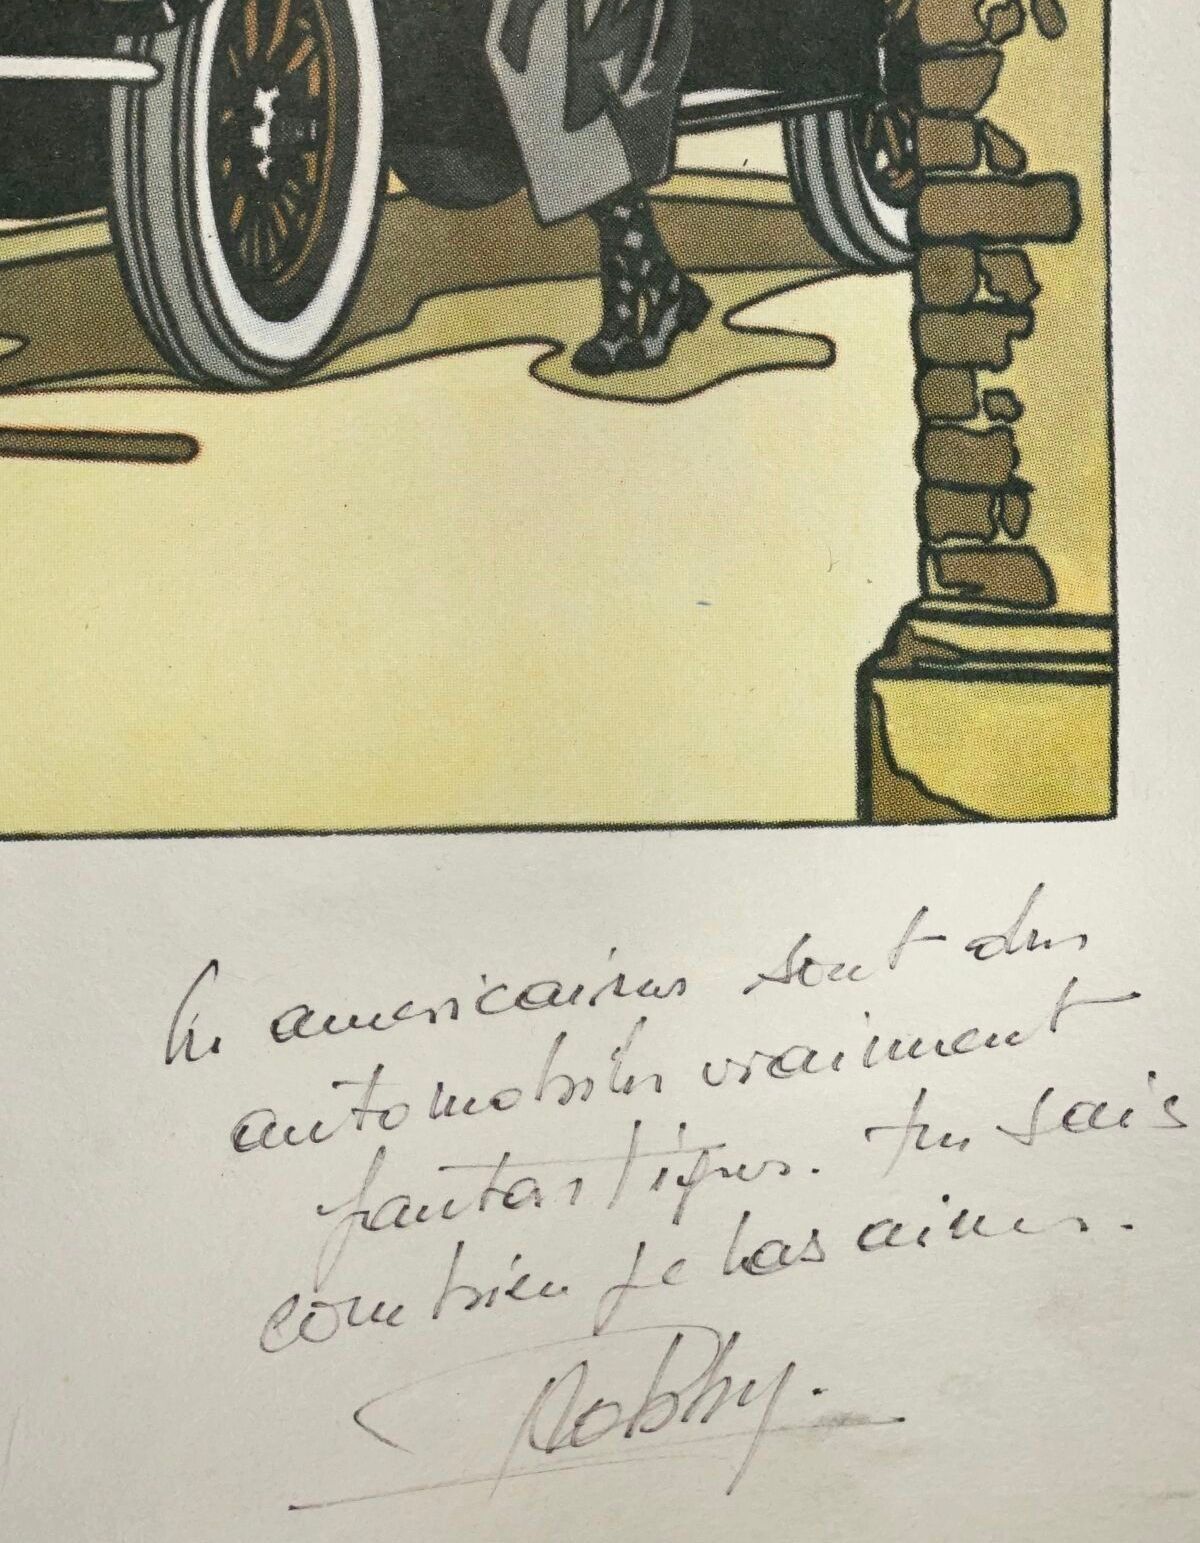 les americaines sont des
automobiles vraiment
fantastiques. tu sais
combien je les aimes.
Robby.